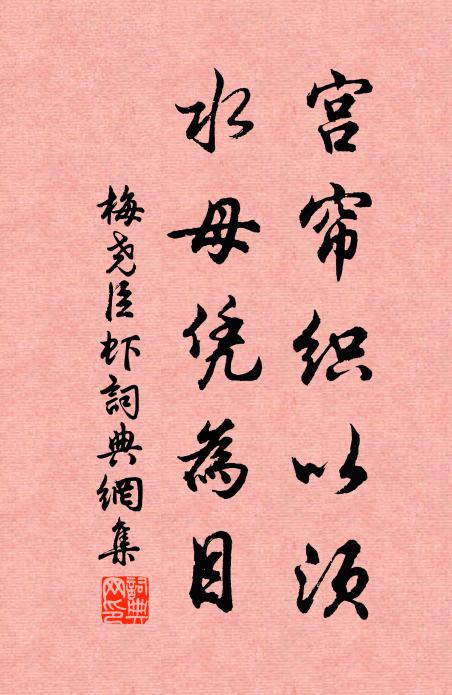 宫帘织以须
水母凭為目
梅尧臣虾詞典網集
詞典网印